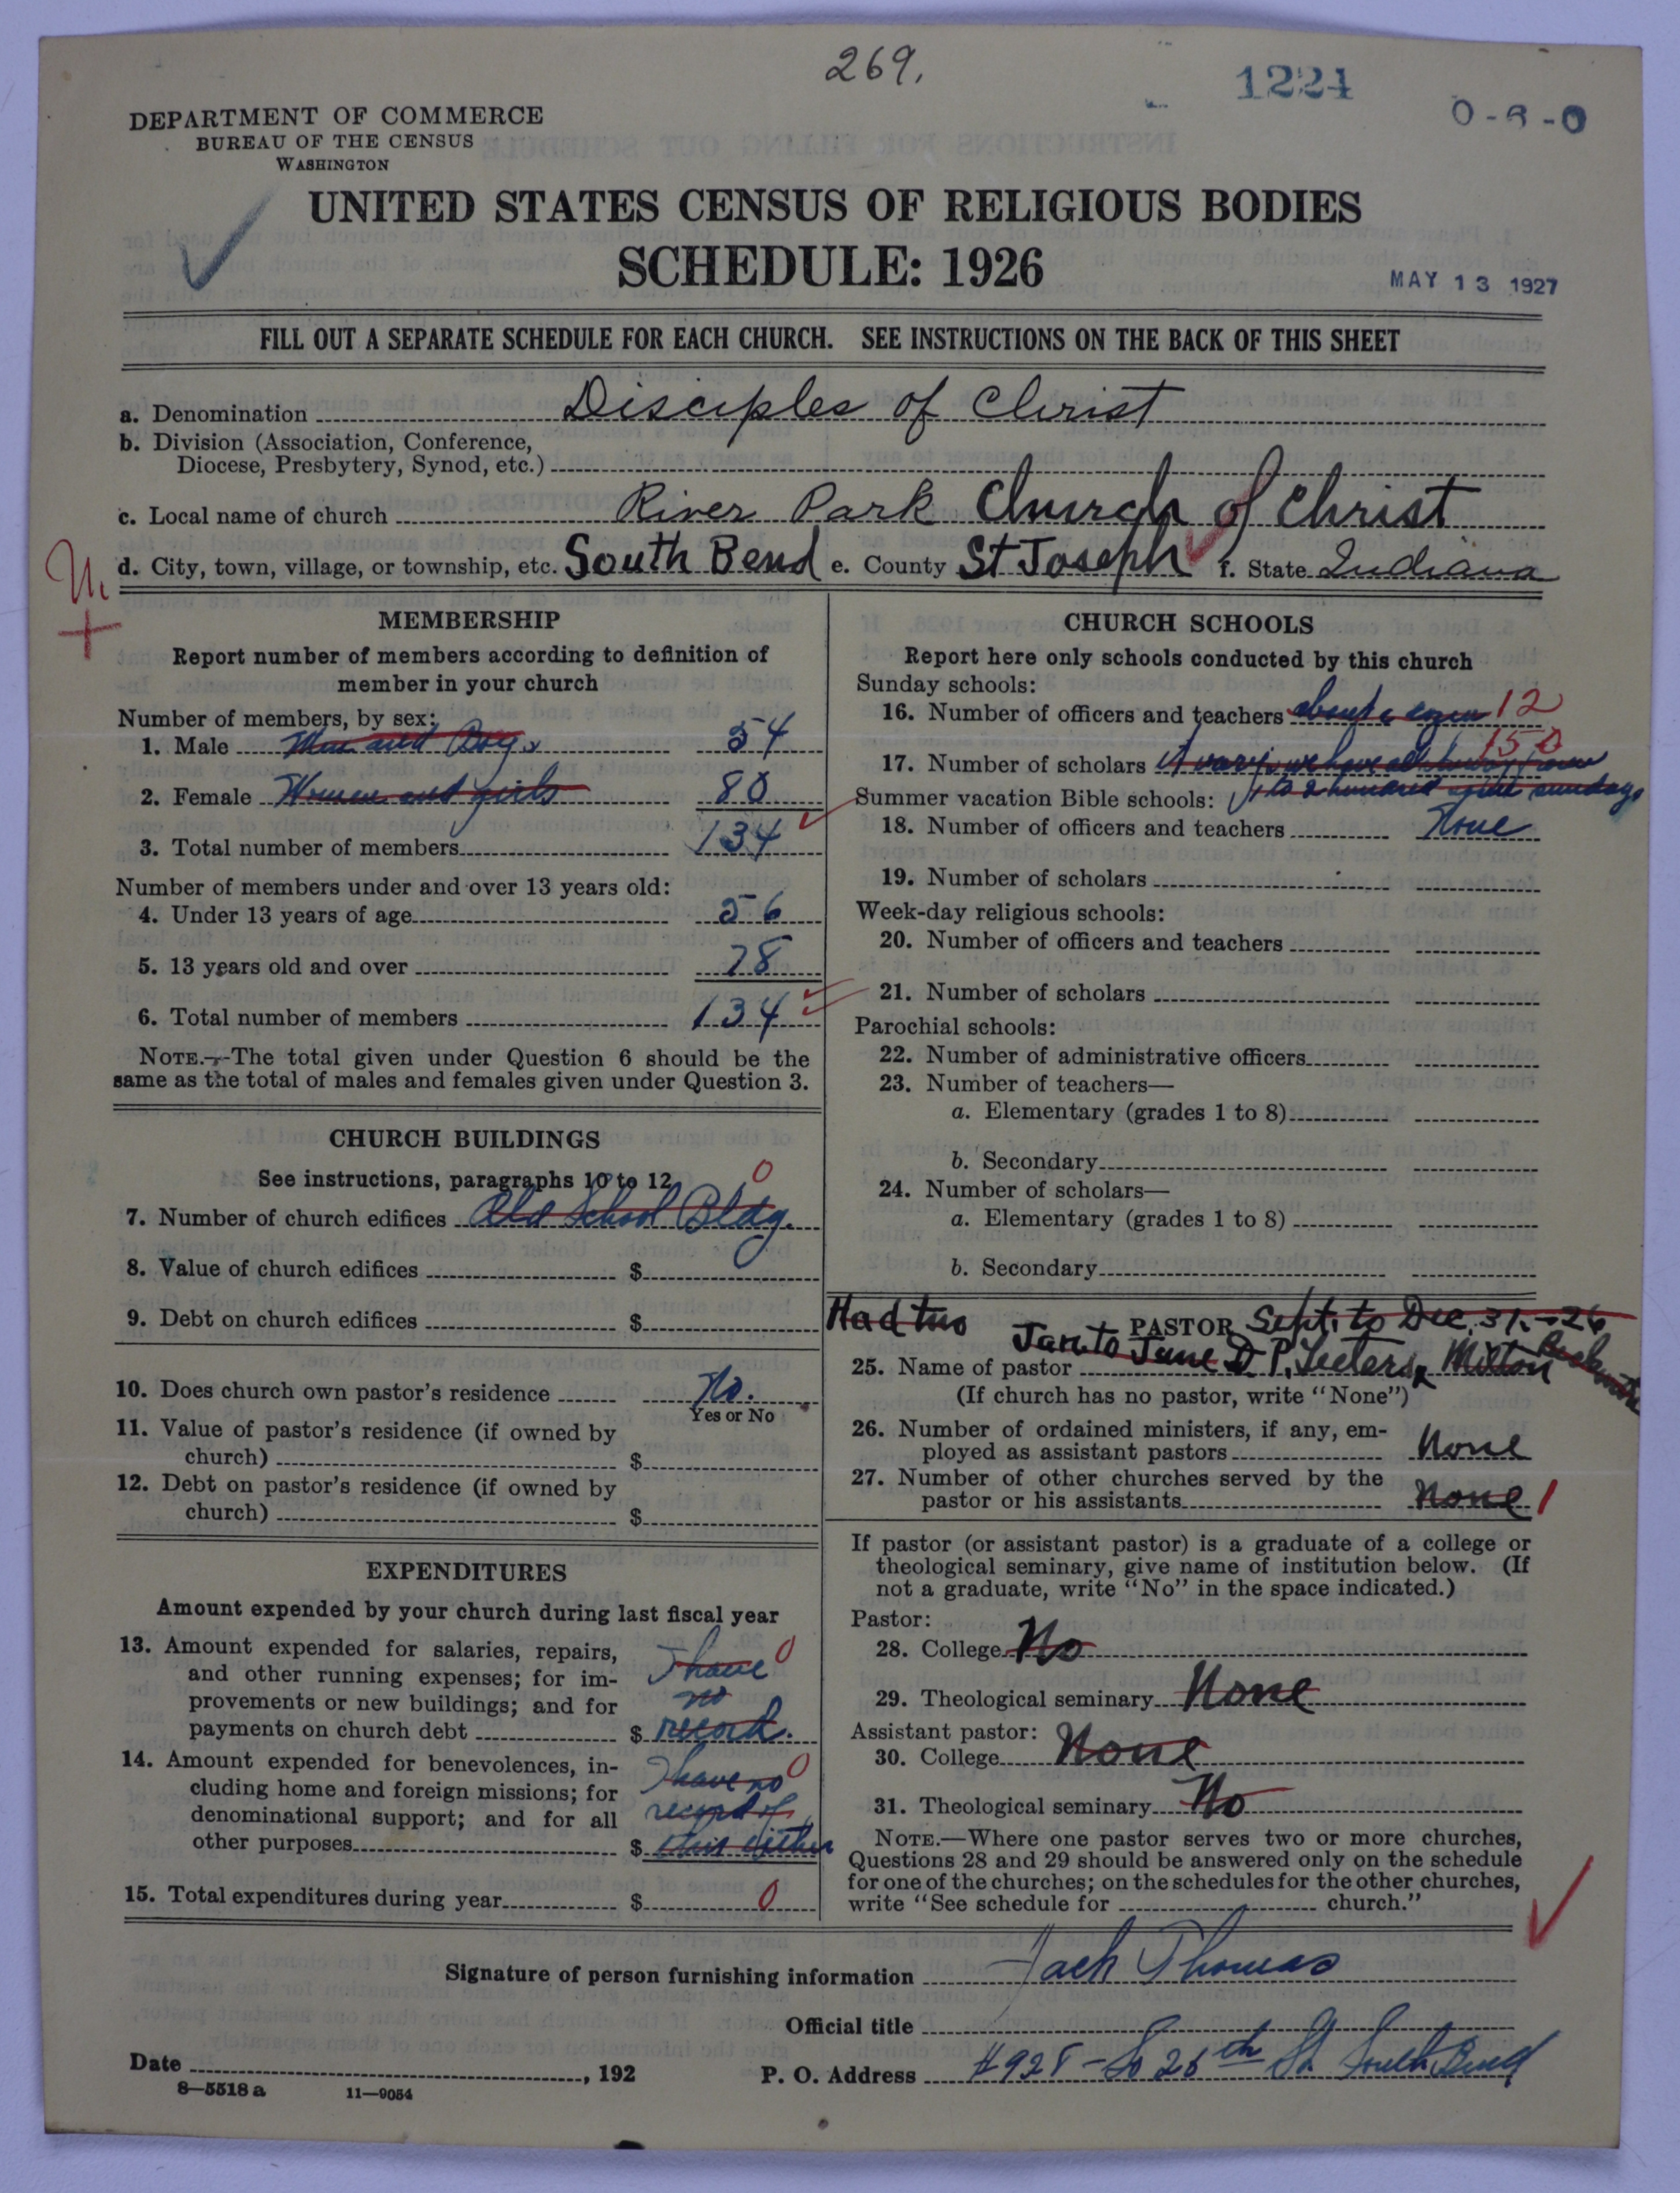 269.
1224
0-6-0
DEPARTMENT OF COMMERCE
BUREAU OF THE CENSUS
WASHINGTON
UNITED STATES CENSUS OF RELIGIOUS BODIES
SCHEDULE: 1926
MAY 13 1927
FILL OUT A SEPARATE SCHEDULE FOR EACH CHURCH. SEE INSTRUCTIONS ON THE BACK OF THIS SHEET
a. Denomination Disciples of Christ
b. Division (Association, Conference,
Diocese, Presbytery, Synod, etc.)
c. Local name of church River Park Church of Christ
d. City, town, village, or township, etc. South Bend e. County St Joseph f. State Indiana
MEMBERSHIP
Report number of members according to definition of
member in your church
Number of members, by sex:
1. Male Men and Boys 54
2. Female Women and girls 80
3. Total number of members 134
Number of members under and over 13 years old:
4. Under 13 years of age 56
5. 13 years old and over 78
6. Total number of members 134
NOTE.—The total given under Question 6 should be the
same as the total of males and females given under Question 3.
CHURCH BUILDINGS
See instructions, paragraphs 10 to 12
0
7. Number of church edifices Old School Bldg.
8. Value of church edifices $
9. Debt on church edifices $
10. Does church own pastor's residence No.
Yes or No
11. Value of pastor's residence (if owned by
church) $
12. Debt on pastor's residence (if owned by
church) $
EXPENDITURES
Amount expended by your church during last fiscal year
13. Amount expended for salaries, repairs, I have 0
and other running expenses; for im-
provements or new buildings; and for no
payments on church debt $ record.
14. Amount expended for benevolences, in- 0
cluding home and foreign missions; for I have no
denominational support; and for all record of
other purposes $ this either
15. Total expenditures during year $ 0
CHURCH SCHOOLS
Report here only schools conducted by this church
Sunday schools:
16. Number of officers and teachers about a dozen 12
150
17. Number of scholars it varys we have all
Summer vacation Bible schools: a hundred sundays
18. Number of officers and teachers None
19. Number of scholars
Week-day religious schools:
20. Number of officers and teachers
21. Number of scholars
Parochial schools:
22. Number of administrative officers
23. Number of teachers—
a. Elementary (grades 1 to 8)
b. Secondary
24. Number of scholars—
a. Elementary (grades 1 to 8)
b. Secondary
Had two PASTOR Sept. to Dec. 31.-26
Jan to June
25. Name of pastor D. P. Teeters Milton
(If church has no pastor, write "None")
26. Number of ordained ministers, if any, em-
ployed as assistant pastors None
27. Number of other churches served by the
pastor or his assistants None 1
If pastor (or assistant pastor) is a graduate of a college or
theological seminary, give name of institution below. (If
not a graduate, write "No" in the space indicated.)
Pastor:
28. College No
29. Theological seminary None
Assistant pastor:
30. College None
31. Theological seminary No
NOTE.—Where one pastor serves two or more churches,
Questions 28 and 29 should be answered only on the schedule
for one of the churches; on the schedules for the other churches,
write "See schedule for church."
Signature of person furnishing information Jack Thomas
Official title
Date , 192
P. O. Address #928 - So 26th St. South Bend
8—5518 a 11—9054